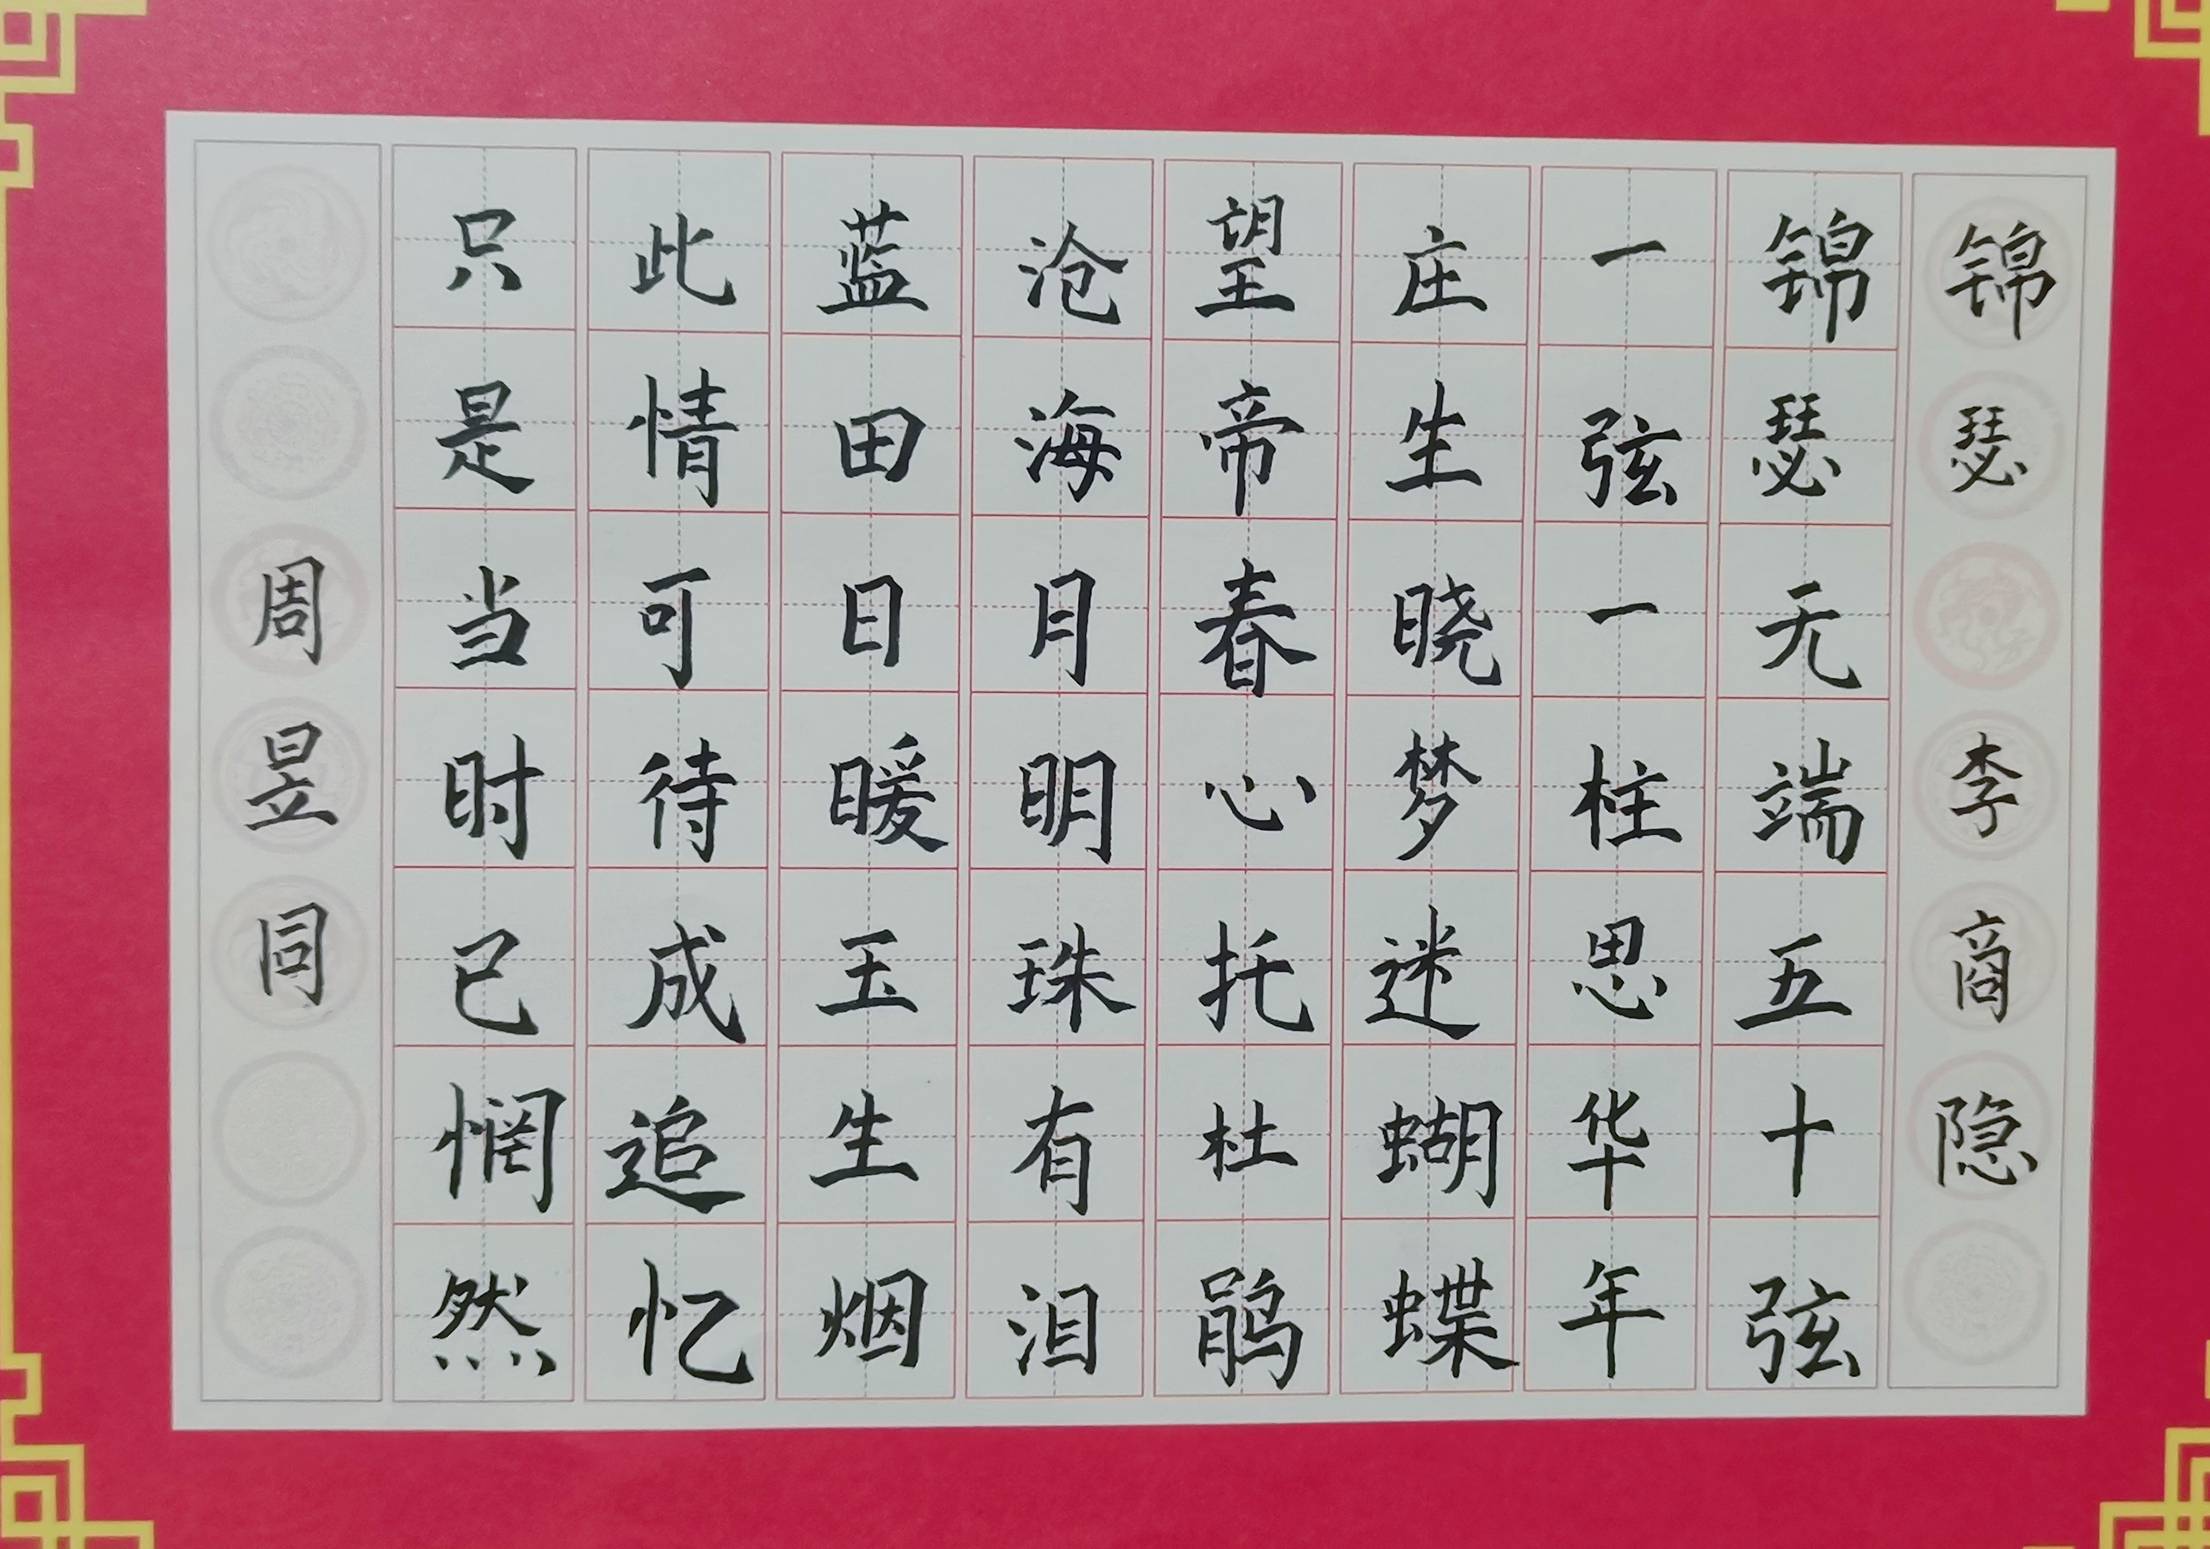 锦瑟 李商隐
锦瑟无端五十弦
一弦一柱思华年
庄生晓梦迷蝴蝶
望帝春心托杜鹃
沧海月明珠有泪
蓝田日暖玉生烟
此情可待成追忆
只是当时已惘然
周昱同